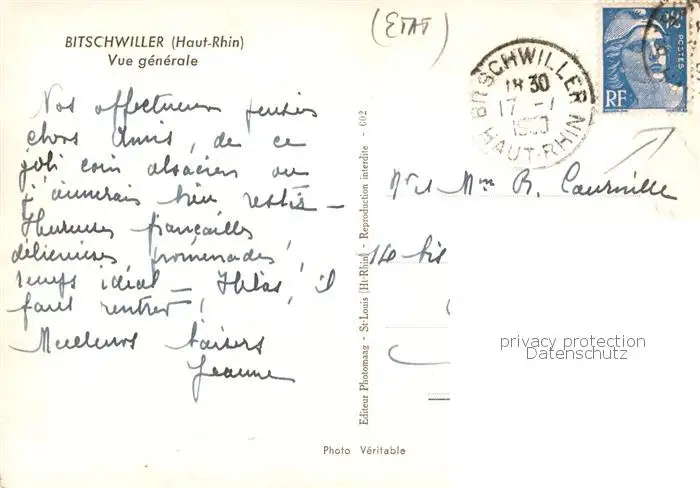 BITSCHWILLER (Haut-Rhin)
Vue générale
(ETAT)
BITSCHWILLER
18 30
17 -
HAUT-RHIN
POSTES
RF
Nos affectueuses pensées
chers Amis, de ce
joli coin alsacien où
j'aimerais bien rester —
Heureuses fiançailles,
délicieuses promenades,
temps idéal — Hélas, il
faut rentrer !
Meilleurs baisers
Jeanne
Editeur Photomaag - St-Louis (Ht-Rhin) - Reproduction interdite - 602
Mr et Mme R.
14 bis
privacy protection
Datenschutz
Photo Véritable